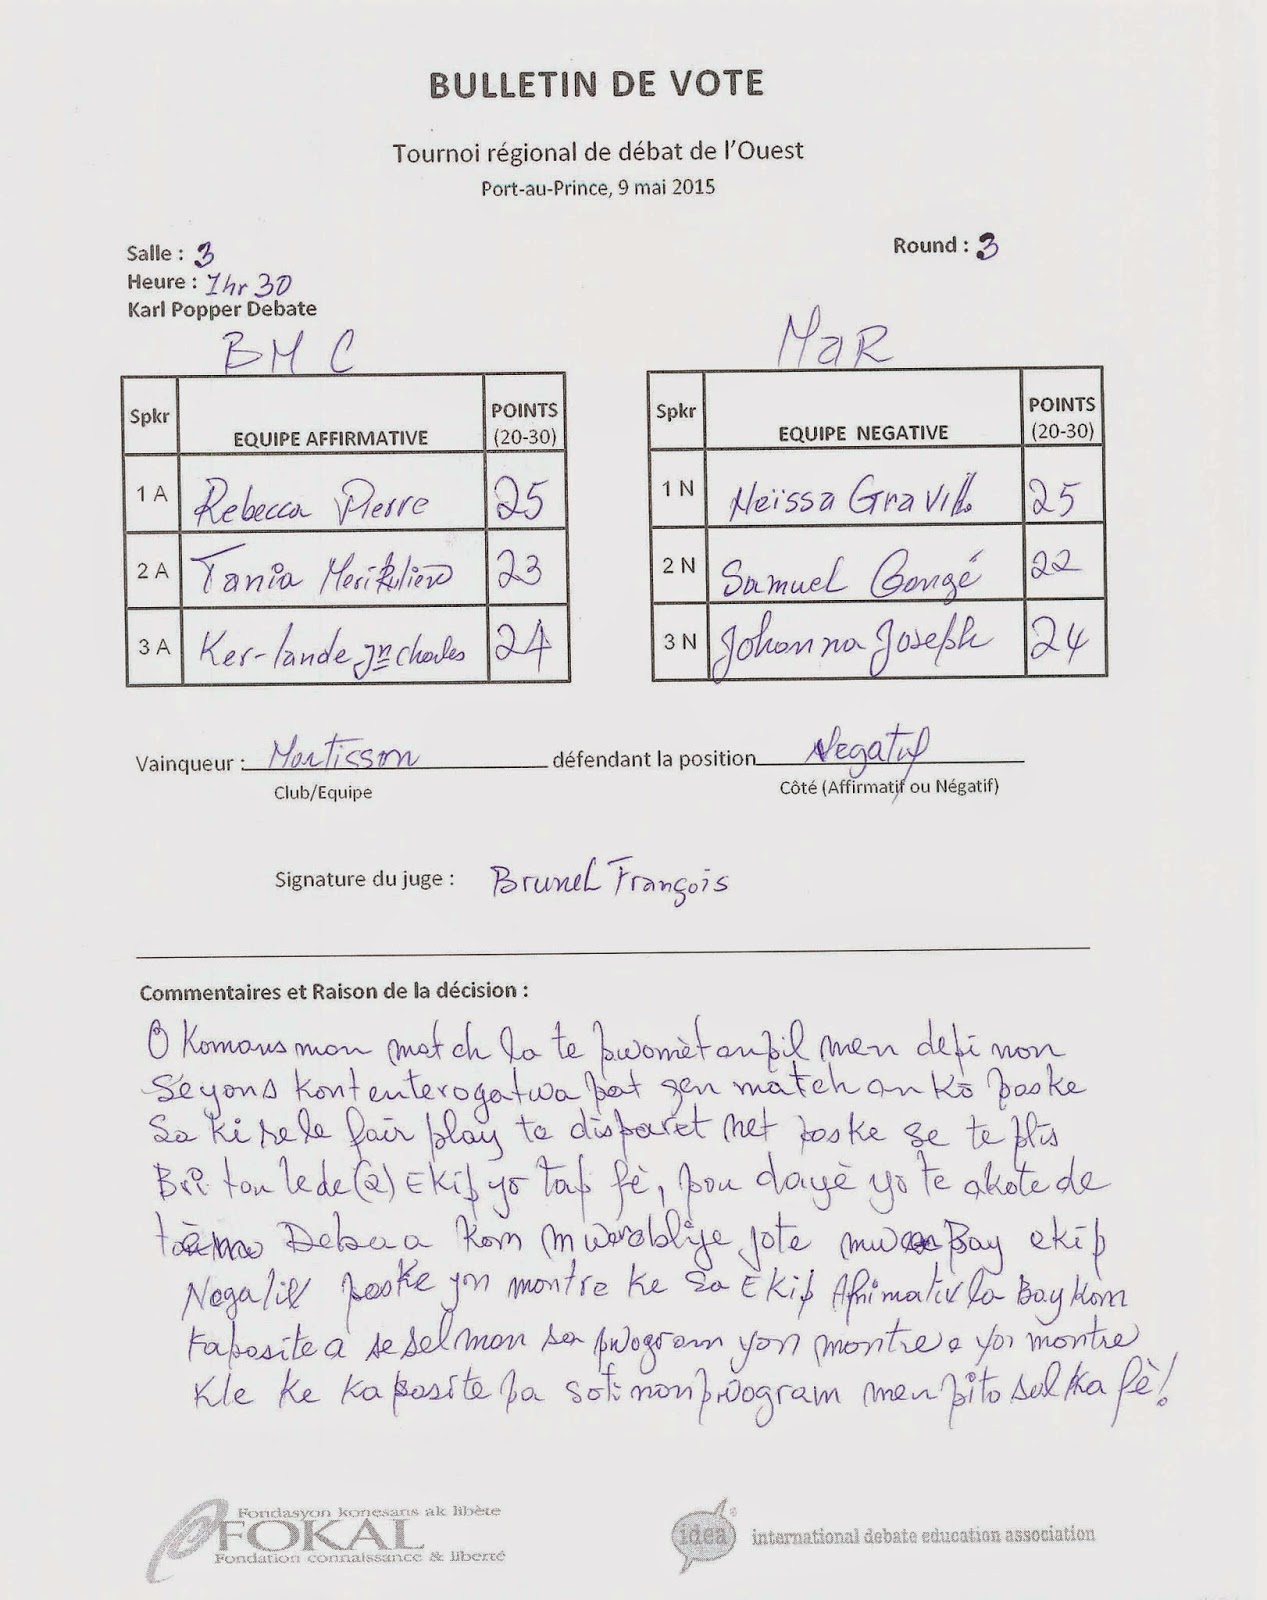 BULLETIN DE VOTE
Tournoi régional de débat de l'Ouest
Port-au-Prince, 9 mai 2015
Salle : 3
Round : 3
Heure : 1hr 30
Karl Popper Debate
BMC
MaR
Spkr EQUIPE AFFIRMATIVE POINTS (20-30)
1 A Rebecca Pierre 25
2 A Tania 23
3 A Ker-lande Jn charles 24
Spkr EQUIPE NEGATIVE POINTS (20-30)
1 N Neïssa 25
2 N Samuel 22
3 N Johanna Joseph 24
Vainqueur : Martissan défendant la position Negatif
Club/Equipe Côté (Affirmatif ou Négatif)
Signature du juge : Brunel François
Commentaires et Raison de la décision :
O Komansman match la te pwomèt anpil men depi nan
Seyans kont enterogatwa pat gen match ankò paske
Sa ki rele fair play te disparèt nèt paske se te plis
Bri tou lede (2) Ekip yo tap fè, pou dayè yo te akote de
Debaa kom mwen oblije vote mwen Bay ekip
Negatif paske yon montre ke sa Ekip Afimatif la Bay kom
kaposite a se selman sa pwogram yon montre montre
kle ke kaposite pa soti nan pwogram men pito sel ka fè!
Fondasyon konesans ak libète
FOKAL
Fondation connaissance & liberté
idea international debate education association